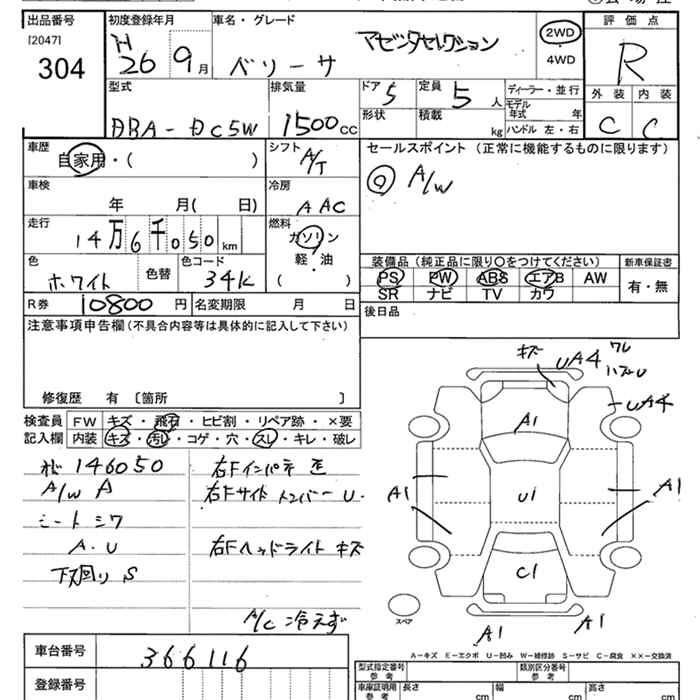 出品番号 初度登録年月 車名・グレード 評価点
[2047]
304
H 26 9月 ベリーサ
マゼンタセレクション
2WD
4WD
R
型式 排気量 ドア 5 定員 5人 ディーラー・並行
モデル年式 年
外装 内装
DBA-DC5W 1500cc
形状 積載 kg ハンドル 左・右
C C
車歴 シフト セールスポイント (正常に機能するものに限ります)
自家用・( ) A/T
◎ A/W
車検 冷房
年 月( 日) AAC
走行 燃料
14万6千050km ガソリン
軽・油
( )
装備品 (純正品に限り〇をつけてください) 新車保証書
色 色替 色コード
ホワイト 34K
PS PW ABS エアB AW 有・無
SR ナビ TV カワ
R券 10800円 名変期限 月 日
後日品
注意事項申告欄(不具合内容等は具体的に記入して下さい)
修復歴 有 〔箇所 〕
検査員記入欄
FW キズ・飛石・ヒビ割・リペア跡・×要
内装 キズ・汚レ・コゲ・穴・スレ・キレ・破レ
146050
A/W A
シートシワ
A.U
下廻り S
右Fインパネ 歪
右Fサイドメンバー U.
右Fヘッドライト キズ
A/C 冷えず
キズ UA4 ワレ
ハズU
UA4
A1
A1 U1 A1
C1
A1 A1
スペア
A-キズ E-エクボ U-凹み W-補修跡 S-サビ C-腐食 ××-交換済
車台番号 366116
登録番号
型式指定番号 参考 類別区分番号 参考
車庫証明用 参考 長さ cm 幅 cm 高さ cm